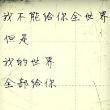 我不能给你全世界
但是
我的世界
全部给你